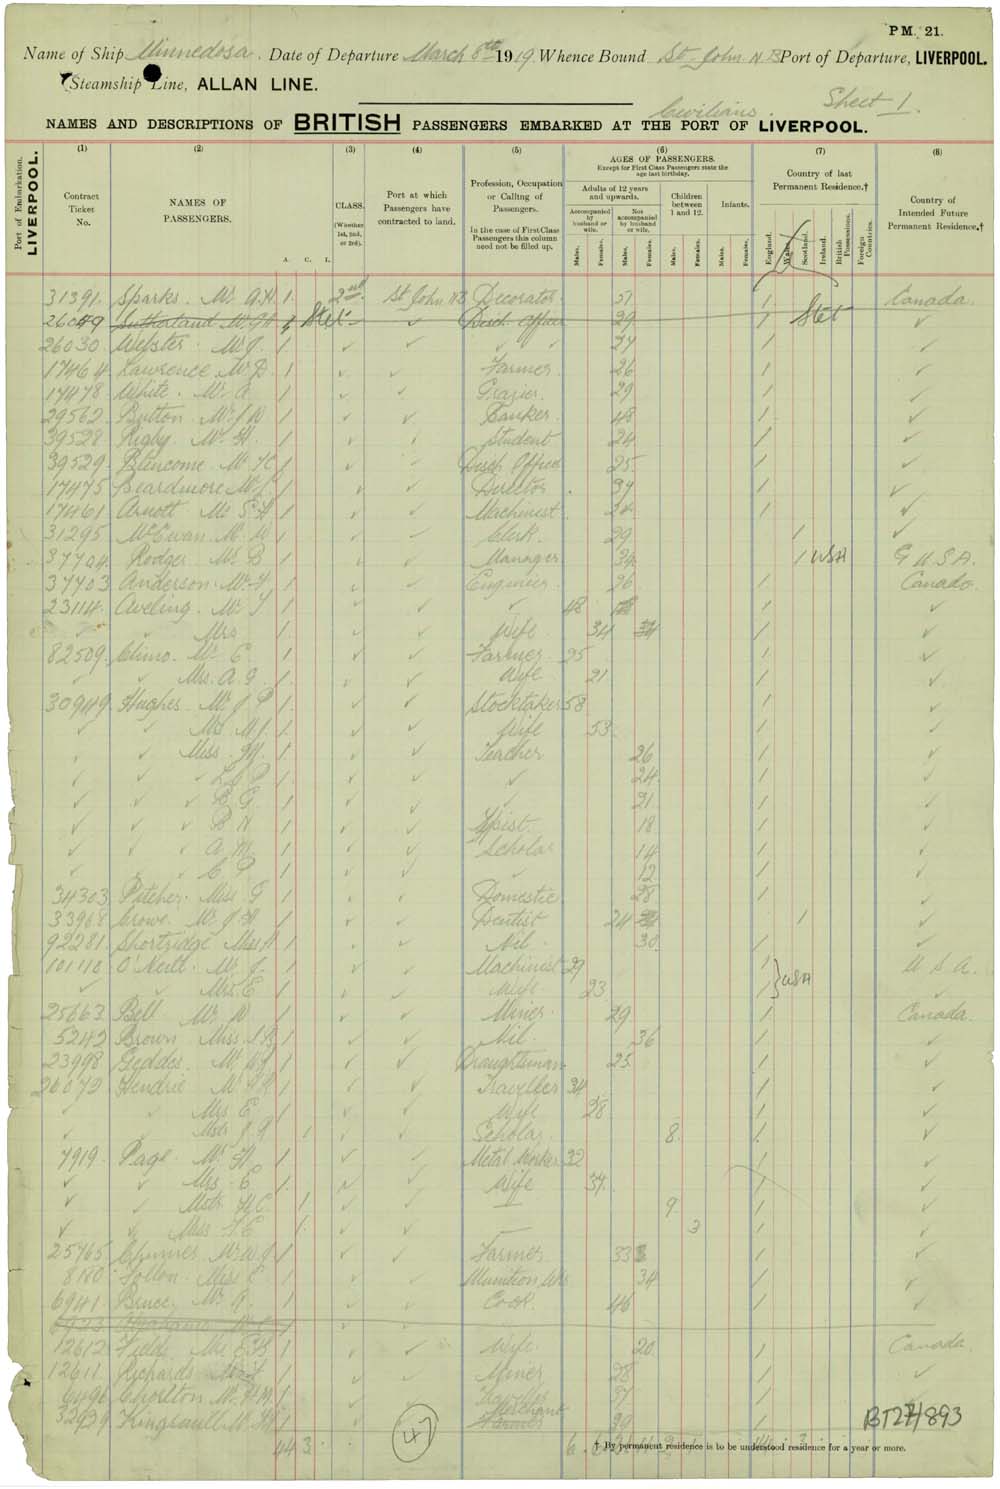 PM. 21.
Name of Ship Minnedosa. Date of Departure March 8th 1919. Whence Bound St. John N.B Port of Departure, LIVERPOOL.
Steamship Line, ALLAN LINE.
Civilians. Sheet 1.
NAMES AND DESCRIPTIONS OF BRITISH PASSENGERS EMBARKED AT THE PORT OF LIVERPOOL.
Port of Embarkation. LIVERPOOL.
(1) (2) (3) (4) (5) (6) (7) (8)
Contract Ticket No.
NAMES OF PASSENGERS.
CLASS. (Whether 1st, 2nd, or 3rd).
A. C. I.
Port at which Passengers have contracted to land.
Profession, Occupation or Calling of Passengers.
In the case of First Class Passengers this column need not be filled up.
AGES OF PASSENGERS.
Except for First Class Passengers state the age last birthday.
Adults of 12 years and upwards.
Children between 1 and 12.
Infants.
Accompanied by husband or wife.
Not accompanied by husband or wife.
Males. Females. Males. Females. Males. Females. Males. Females.
Country of last Permanent Residence.†
England. Wales. Scotland. Ireland. British Possessions. Foreign Countries.
Country of Intended Future Permanent Residence.†
31391. Sparks. Mr A.H. 1. 2nd. St John NB Decorator. 51 / Canada.
26049 Sutherland Mr 1 Stet ✓ Disch. Officer 29 / Stet ✓
26030 Webster. Mr J. 1 ✓ ✓ ✓ 27 / ✓
17464 Lawrence Mr D. 1 ✓ ✓ Farmer. 26 / ✓
17478 White. Mr A. 1 ✓ ✓ Grazier. 29 / ✓
29562 Button. Mr J W 1 ✓ ✓ Banker 48 / ✓
39528 Rigby. Mr H. 1 ✓ ✓ Student 24 / ✓
39529 Mr 1 ✓ ✓ Disch Officer 25. / ✓
17475 Beardmore Mr 1 ✓ ✓ Director 37 / ✓
17461 Arnott Mr 1 ✓ ✓ Machinist 24 / ✓
31295 McEwan. Mr W 1 ✓ ✓ Clerk. 29 / ✓
37704 Rodger Mr B 1 ✓ ✓ Manager 34 / USA U.S.A.
37703 Anderson. Mr 1 ✓ ✓ Engineer. 26 / Canada.
23114. Aveling. Mr 1 ✓ ✓ ✓ 48 / ✓
✓ ✓ Mrs 1. ✓ ✓ Wife 34 / ✓
82509. Climo. Mr E. 1. ✓ ✓ Farmer. 25 / ✓
✓ ✓ Mrs. A. J. 1. ✓ ✓ Wife 21 / ✓
30949 Hughes. Mr J P 1. ✓ ✓ Stocktaker 58 / ✓
✓ ✓ Mrs M J. 1. ✓ ✓ Wife 53. / ✓
✓ ✓ Miss 1. ✓ ✓ Teacher 26 / ✓
✓ ✓ ✓ 1. ✓ ✓ ✓ 24. / ✓
✓ ✓ ✓ B G. 1. ✓ ✓ ✓ 21 / ✓
✓ ✓ ✓ B N 1. ✓ ✓ Typist. 18 / ✓
✓ ✓ ✓ A. M. 1. ✓ ✓ Scholar 14 / ✓
✓ ✓ ✓ C P 1. ✓ ✓ ✓ 12 / ✓
34303 Pitcher. Miss. 1. ✓ ✓ Domestic. 28 / ✓
33968 Crowe. Mr 1. ✓ ✓ Dentist 24 / ✓
92281 Shortridge Miss H 1. ✓ ✓ Nil. 30. / ✓
101110 O'Neill. Mr J. 1. ✓ ✓ Machinist 29 / } USA U S A.
✓ ✓ Mrs E 1. ✓ ✓ Wife. 23 / ✓
25663 Bell Mr W 1 ✓ ✓ Miner. 29 / Canada.
5242 Brown Miss. 1 ✓ ✓ Nil. 36 / ✓
23998 Geddes. Mr 1 ✓ ✓ Draughtsman 25. / ✓
26072 Hendrie Mr 1 ✓ ✓ Traveller 34 / ✓
✓ ✓ Mrs E 1 ✓ ✓ Wife 28 / ✓
✓ ✓ Mstr 1. ✓ ✓ Scholar. 8. / ✓
7919. Page. Mr 1 ✓ ✓ Metal Worker 32 / ✓
✓ ✓ Mrs. E 1. ✓ ✓ Wife 37. / ✓
✓ ✓ Mstr 1. ✓ ✓ — 9 / ✓
✓ ✓ Miss 1. ✓ ✓ — 3 / ✓
25765 Mr 1 ✓ ✓ Farmer. 33 / ✓
8180 Miss 1 Munition 34 / ✓
6941 Bruce. Mr A. 1 ✓ ✓ Cook. 46 / ✓
12612 1 ✓ Wife. 20. / Canada.
12611. Richards 1 Miner 28 / ✓
6496 Chorlton Mr 1 Traveller 37 / ✓
32939 Mr 1 Merchant Farmer 39 / ✓
44 3.
47
BT27/893
† By permanent residence is to be understood residence for a year or more.